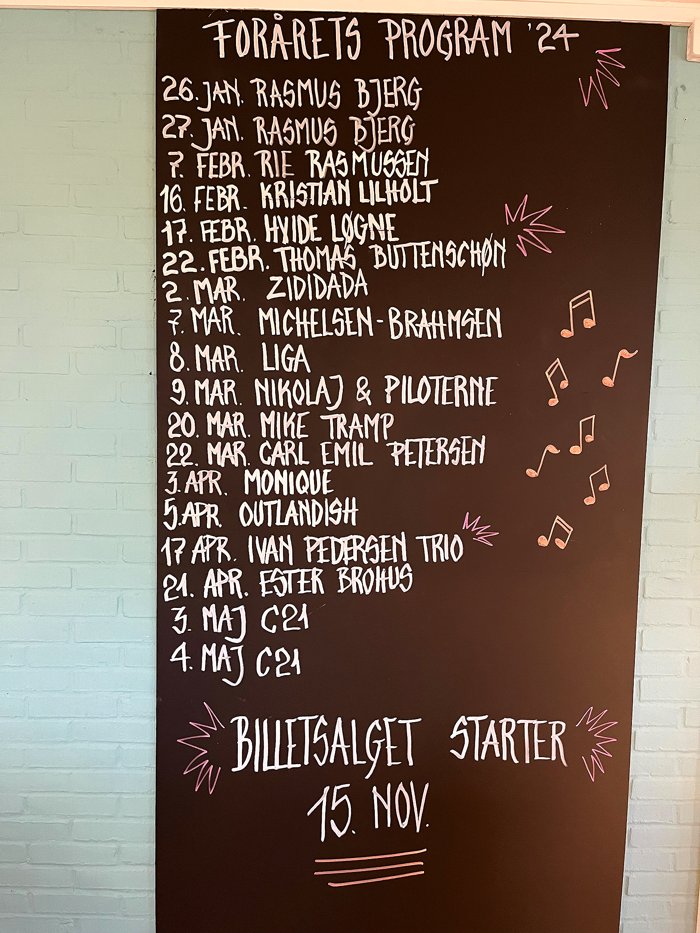 FORÅRETS PROGRAM '24
26. JAN. RASMUS BJERG
27. JAN. RASMUS BJERG
7. FEBR. RIE RASMUSSEN
16. FEBR. KRISTIAN LILHOLT
17. FEBR. HVIDE LØGNE
22. FEBR. THOMAS BUTTENSCHØN
2. MAR. ZIDIDADA
7. MAR. MICHELSEN-BRAHMSEN
8. MAR. LIGA
9. MAR. NIKOLAJ & PILOTERNE
20. MAR. MIKE TRAMP
22. MAR. CARL EMIL PETERSEN
3. APR. MONIQUE
5. APR OUTLANDISH
17 APR. IVAN PEDERSEN TRIO
21. APR. ESTER BROHUS
3. MAJ C21
4. MAJ C21
BILLETSALGET STARTER
15. NOV.